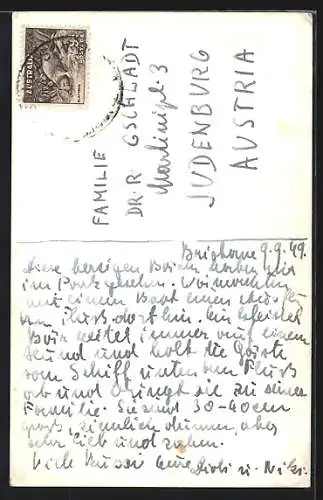 AUSTRALIA
FAMILIE
DR. R. GSCHLADT
Martinipl. 3
JUDENBURG
AUSTRIA
Brisbane 9.9.49.
Diese herzigen Bären haben wir
im Park gesehen. Wir
mit einem Boot einen
Fluss dorthin. Ein
Bär reitet immer auf einem
Hund und holt die Gäste
vom Schiff unten am Fluss
ab und bringt sie zu seiner
Familie. Sie sind 30-40 cm
groß, ziemlich dumm, aber
sehr lieb und zahm.
Viele Küsse Eure u. Niki.